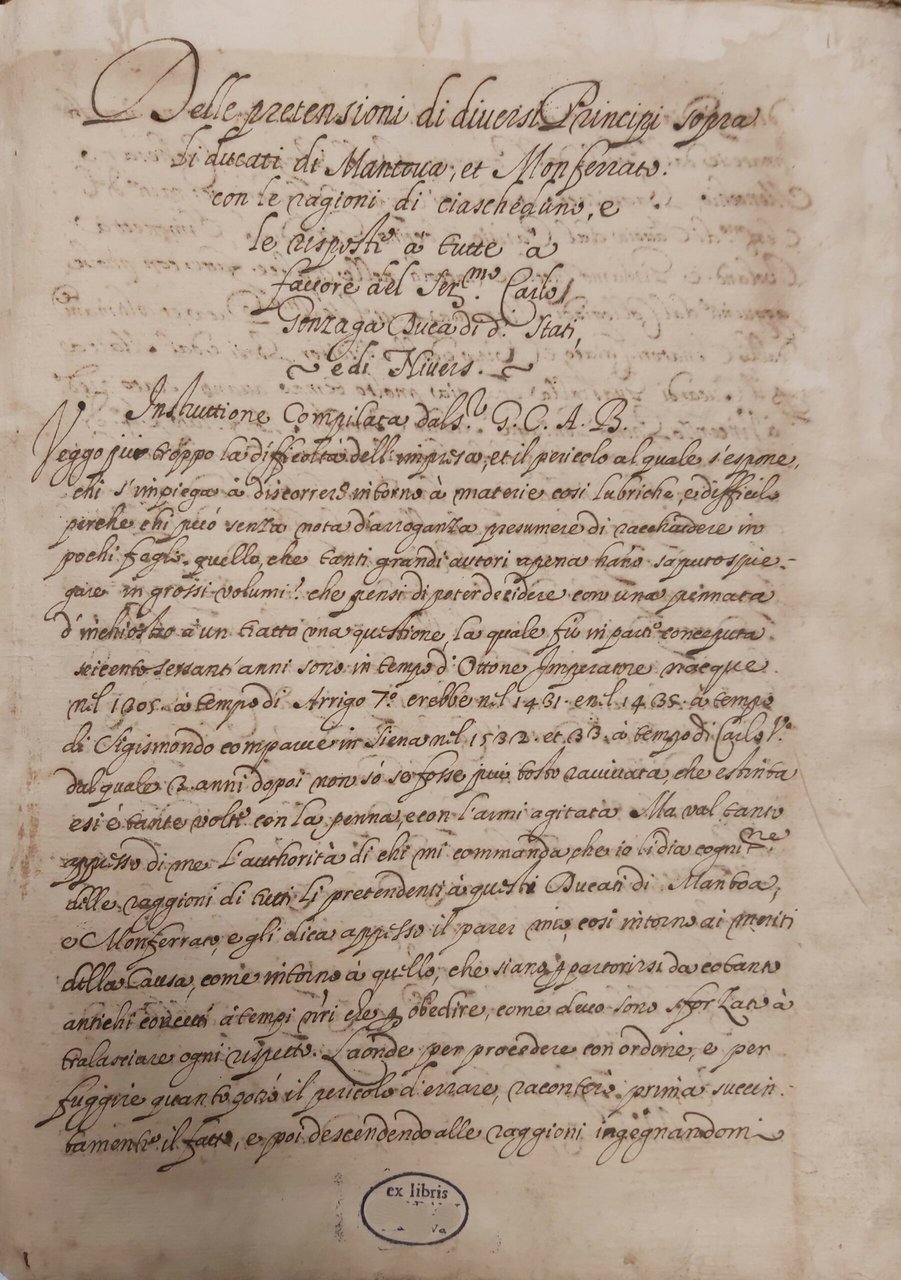 Delle pretensioni di diversi Principi sopra
li ducati di Mantova, et Monferrato.
con le ragioni di ciascheduno, e
le risposte à tutte à
favore del Ser.mo Carlo
Gonzaga Duca di d.i Stati,
e di Nivers.
Instruttione Compilata dal S.r G. C. A. B.
Veggo pur troppo la difficoltà dell'impresa, et il pericolo al quale s'espone,
chi s'impiega à discorrere intorno à materie così lubriche, e difficile
perche chi può senza nota d'arroganza presumere di racchiudere in
pochi fogli quello, che tanti grandi autori apena hano saputo spie-
gare in grossi volumi? che pensi di poter decidere con una pennata
d'inchiostro a un tratto una questione la quale fù in parte conceputa
seicento sessant'anni sono in tempo d'Ottone Imperatore nacque
nel 1305. à tempo di Arrigo 7.o crebbe nel 1431. e nel 1435. à tempo
di Sigismondo comparve in Siena nel 1532. et 33. à tempo di Carlo V.o
dal quale 3. anni dopoi non sò se fosse più tosto ravivata, che estinta
e si è tante volte con la penna, e con l'armi agitata Ma val tanto
appresso di me L'authorità di chi mi commanda che io li dia cogni.ne
delle raggioni di tutti Li pretendenti à questi Ducati di Mantoa,
e Monferrato, e gli dica appresso il parer mio, così intorno ai meriti
della Causa, come intorno à quello, che siano p partorirsi da cotante
antichi concetti à tempi n'ri che p obedire, come devo sono sforzato à
tralasciare ogni rispetto. Laonde per procedere con ordine, e per
fuggire quanto potrò il pericolo d'errare, raconterò prima succin-
tamente il fatto, e poi descendendo alle raggioni ingegnandomi
ex libris